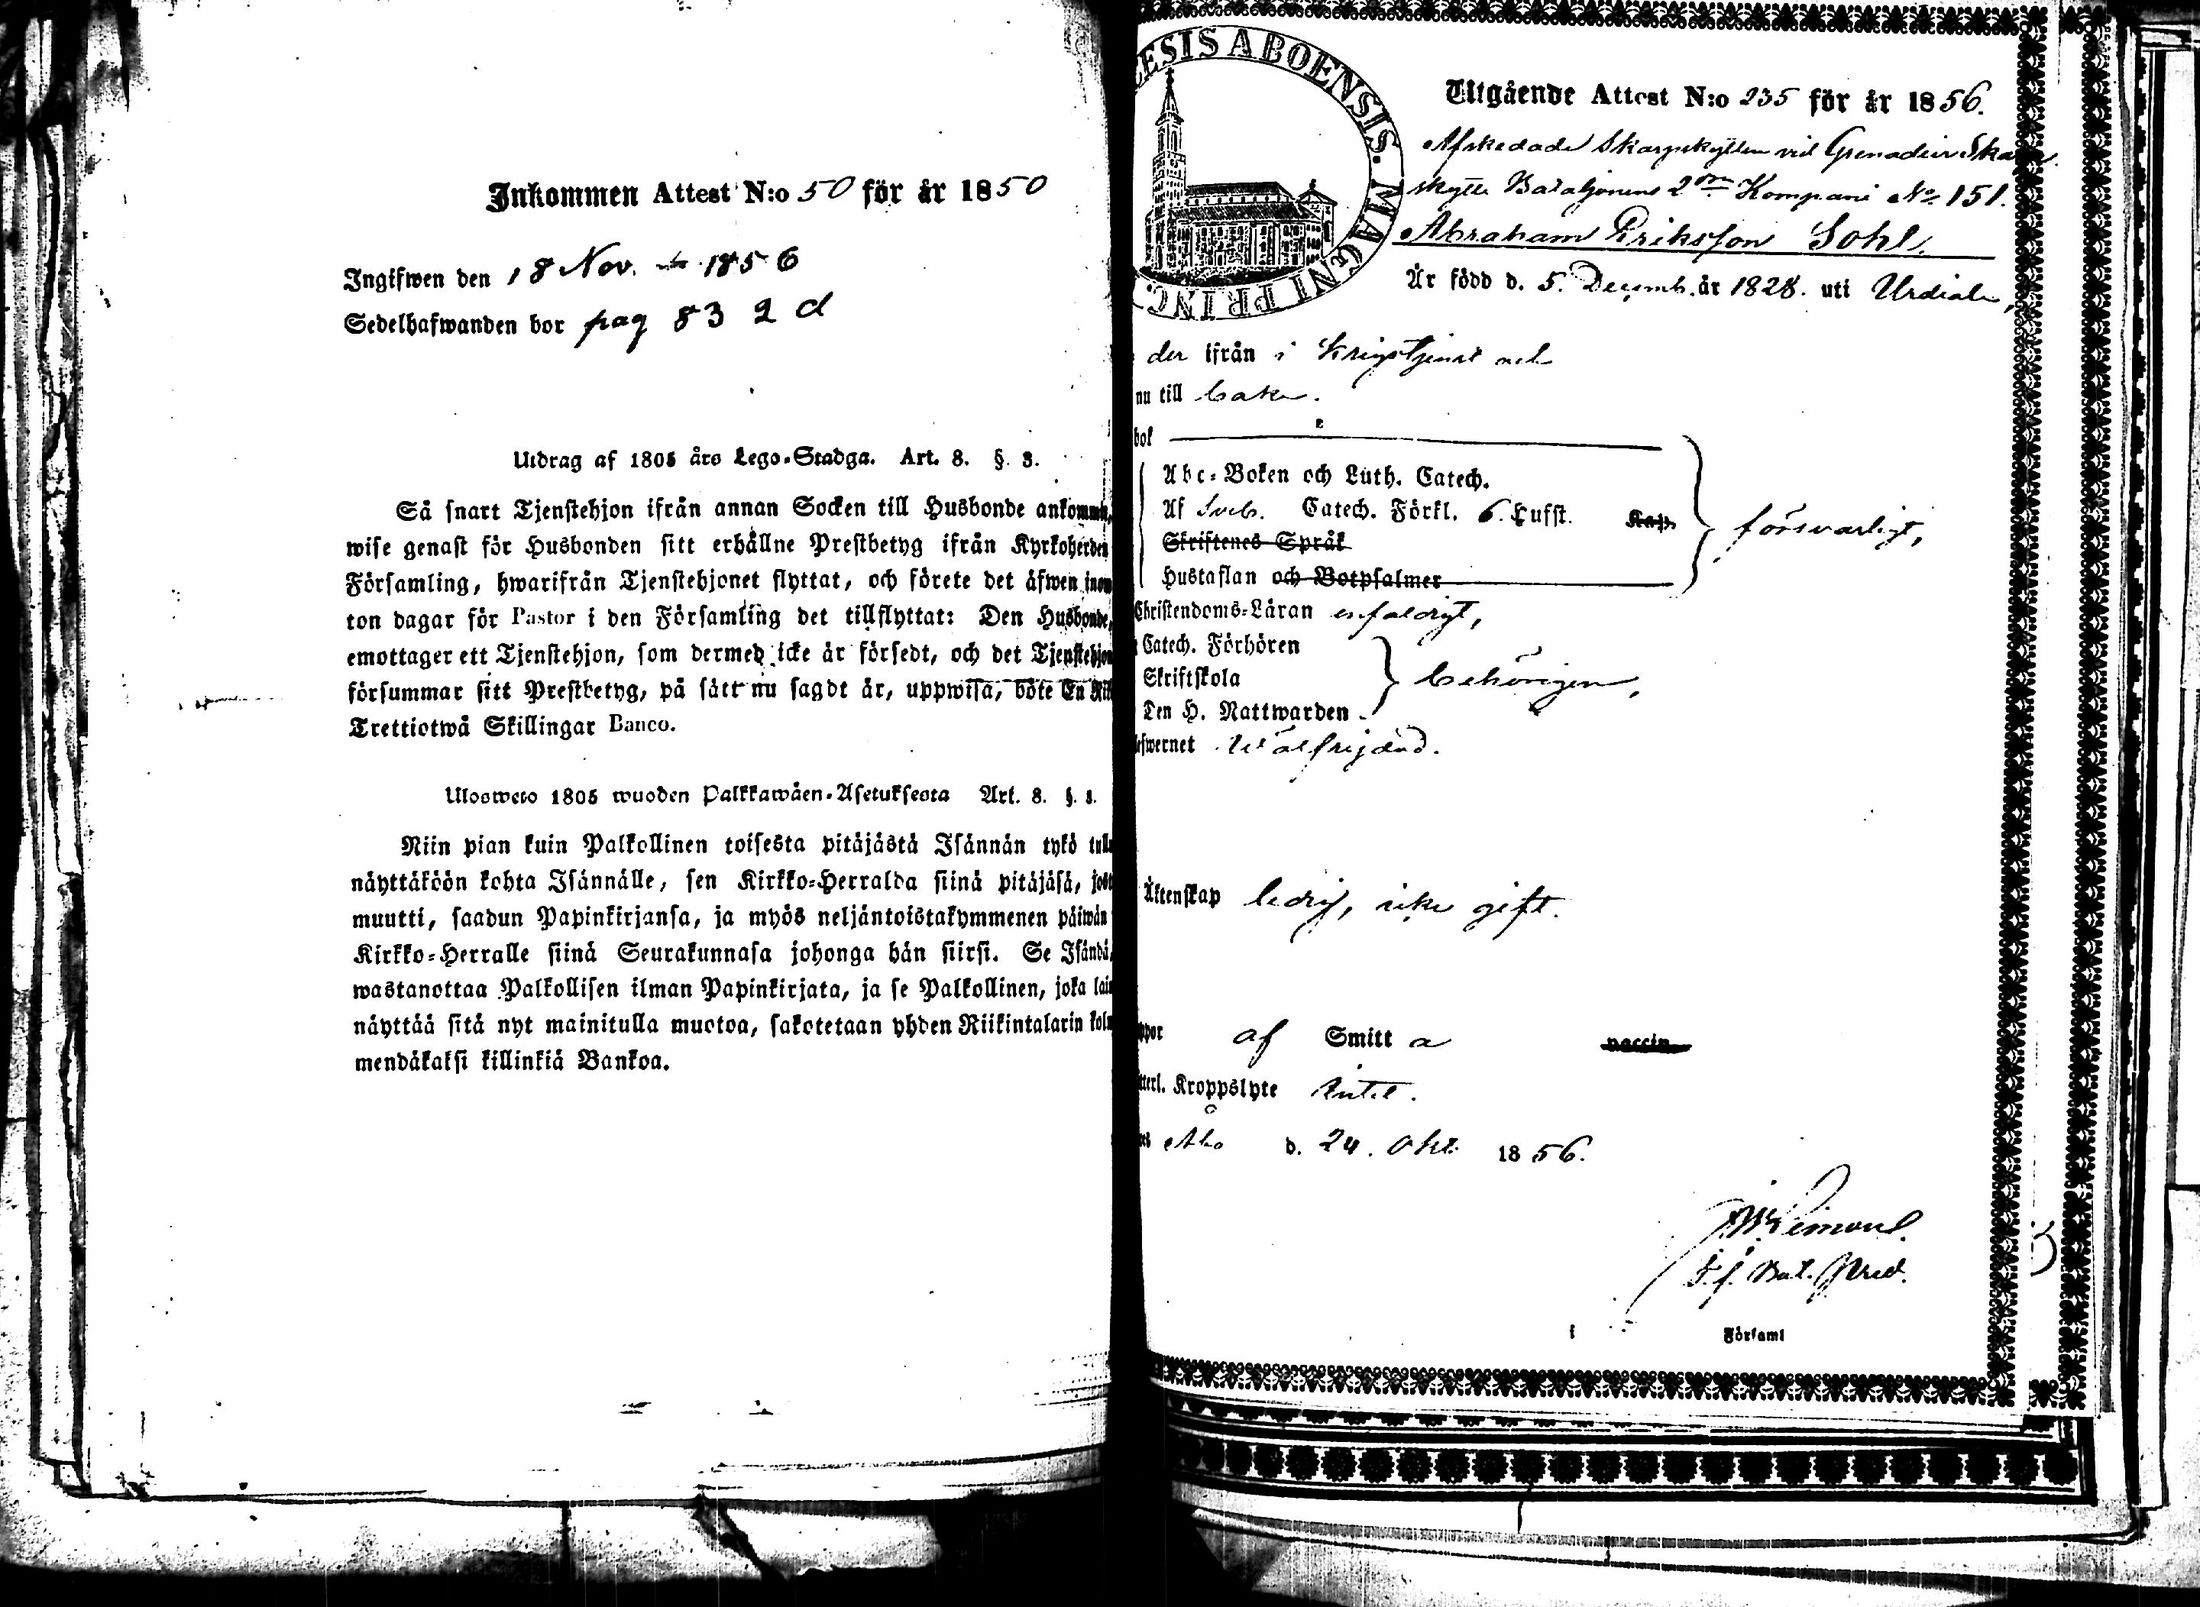 Inkommen Attest N:o 50 för år 1850
Ingifwen den 18 Nov. 1856
Sedelhafwanden bor pag 83 2 d
Utdrag af 1805 års Lego-Stadga. Art. 8. §. 3.
Så snart Tjenstehjon ifrån annan Socken till Husbonde ankommit,
wise genast för Husbonden sitt erhållne Prestbetyg ifrån Kyrkoherden
Församling, hwarifrån Tjenstehjonet flyttat, och förete det äfwen inom
ton dagar för Pastor i den Församling det tillflyttat: Den Husbonde,
emottager ett Tjenstehjon, som dermed icke är försedt, och det Tjenstehjon
försummar sitt Prestbetyg, på sätt nu sagdt är, uppwisa, böte En Rik
Trettiotwå Skillingar Banco.
Ulosweto 1805 wuoden Palkkawäen-Asetuksesta Art. 8. §. 3.
Niin pian kuin Palkollinen toisesta pitäjästä Isännän tykö tull
näyttäköön kohta Isännälle, sen Kirkko-Herralda siinä pitäjäsä, jost
muutti, saadun Papinkirjansa, ja myös neljäntoistakymmenen päiwän
Kirkko-Herralle siinä Seurakunnasa johonga hän siirsi. Se Isändä,
wastanottaa Palkollisen ilman Papinkirjata, ja se Palkollinen, joka lai
näyttää sitä nyt mainitulla muotoa, sakotetaan yhden Riikintalarin kol
mendäkaksi killinkiä Bankoa.
ESIS ABOENSIS. MAGNI PRINC.
Utgående Attest N:o 235 för år 1856.
Afskedade Skarpskytten vid Grenadier Skarp
skytte Bataljonens 2dra Kompani No 151.
Abraham Eriksson Sohl,
Är född d. 5. Decemb. år 1828. uti Urdiala,
der ifrån i Krigstjenst och
nu till baka.
bok
Abc-Boken och Luth. Catech.
Af Sveb. Catech. Förkl. 6. Hufst. Kap.
Skriftenes Språk
Hustaflan och Botpsalmer
försvarligt,
Christendoms-Läran enfaldigt,
Catech. Förhören
Skriftskola
Den H. Nattwarden
behörigen,
efwernet Wälfrejdad.
Äktenskap ledig, icke gift.
ppor af Smitt a vaccin
tterl. Kroppslyte Intet.
Åbo d. 24. Okt. 1856.
T.f. Bat. Pred.
i Förfaml